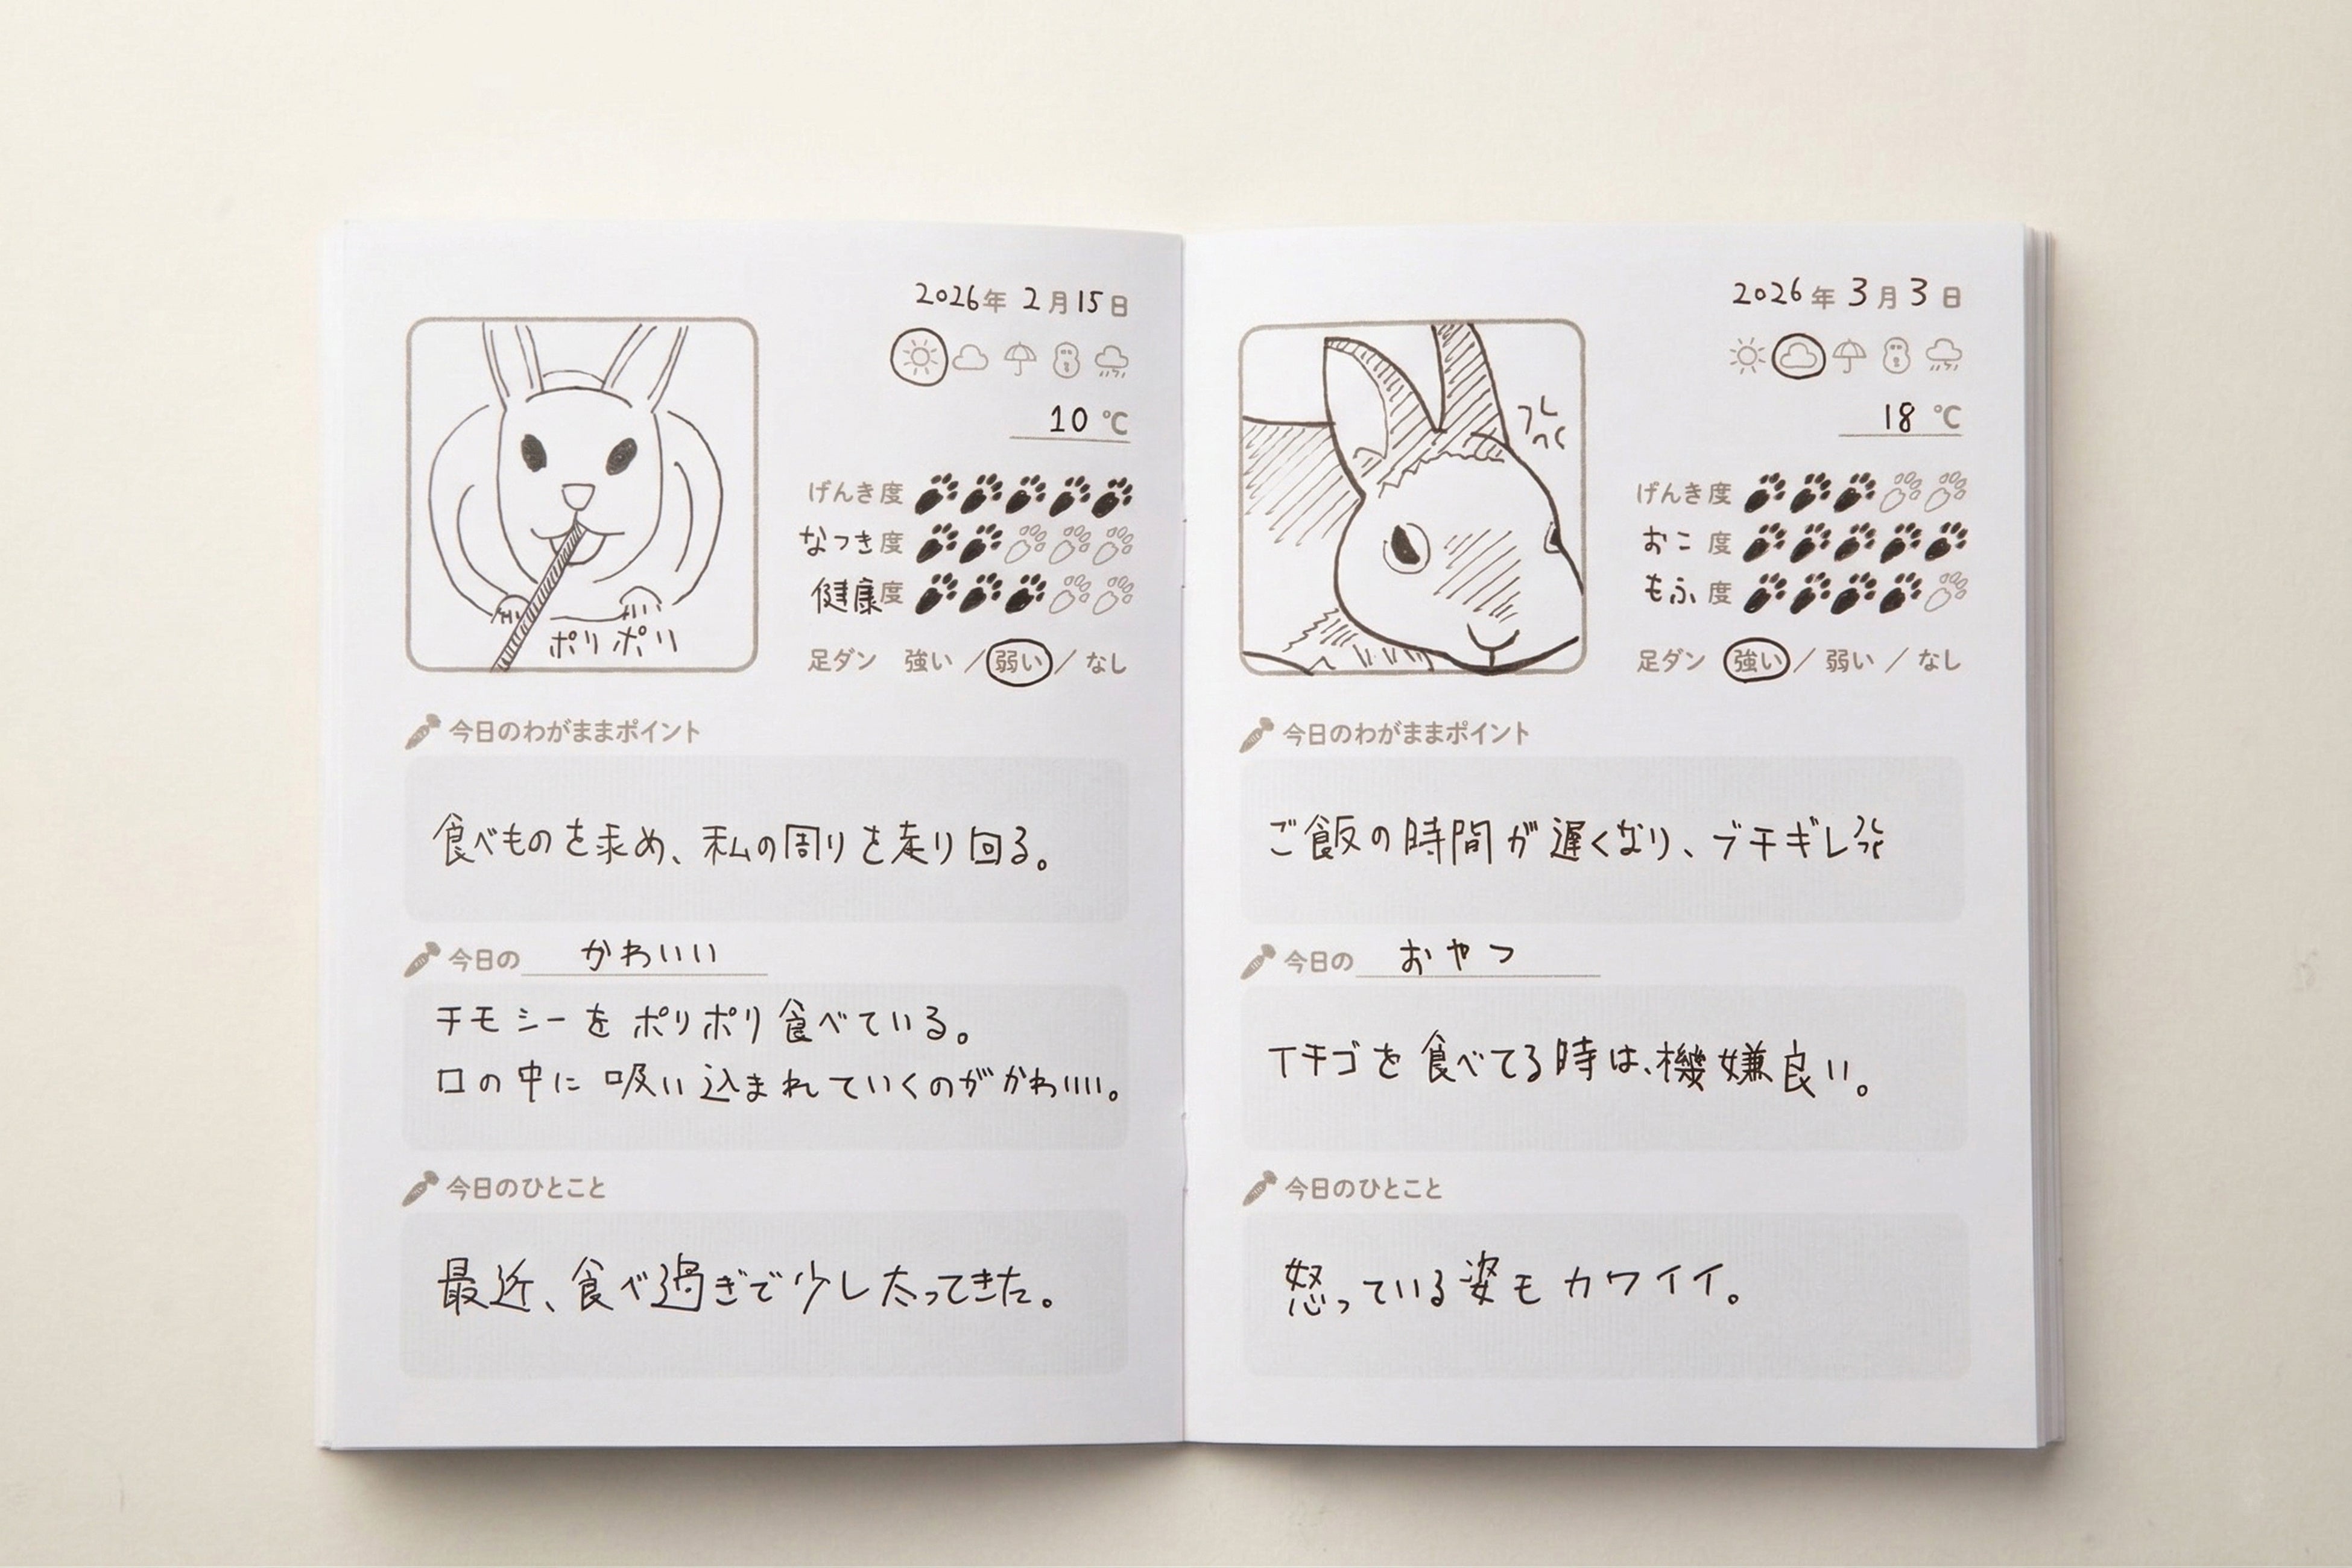 2026年 2月15日
10 ℃
げんき度
なつき度
健康度
足ダン 強い / 弱い / なし
ポリポリ
今日のわがままポイント
食べものを求め、私の周りを走り回る。
今日の かわいい
チモシーをポリポリ食べている。
口の中に吸い込まれていくのがかわいいい。
今日のひとこと
最近、食べ過ぎで少し太ってきた。
2026年 3月3日
18 ℃
げんき度
おこ度
もふ度
足ダン 強い / 弱い / なし
今日のわがままポイント
ご飯の時間が遅くなり、ブチギレ
今日の おやつ
イチゴを食べてる時は、機嫌良い。
今日のひとこと
怒っている姿モカワイイ。